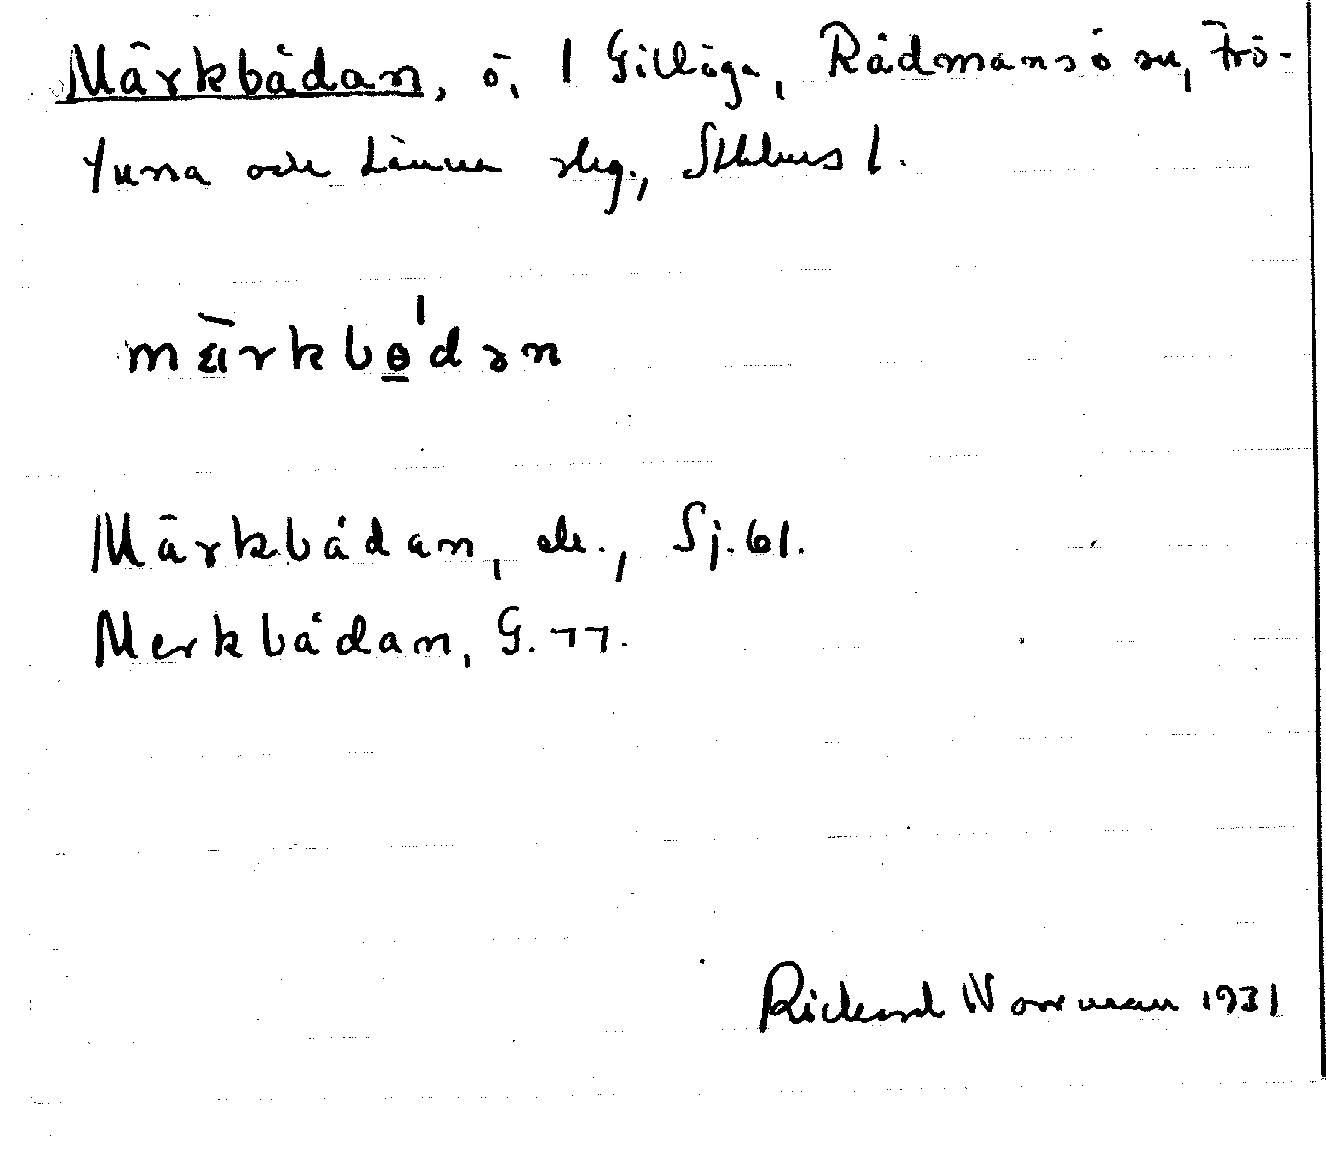 Märkbådan, ö, I Gillöga, Rådmansö sn, Frö-
tuna och Länna skg., Sthlms l.
märkbɵ̠'dən
Märkbådan, de., Sj. 61.
Merkbådan, G. 77.
Rickard Norrman 1931